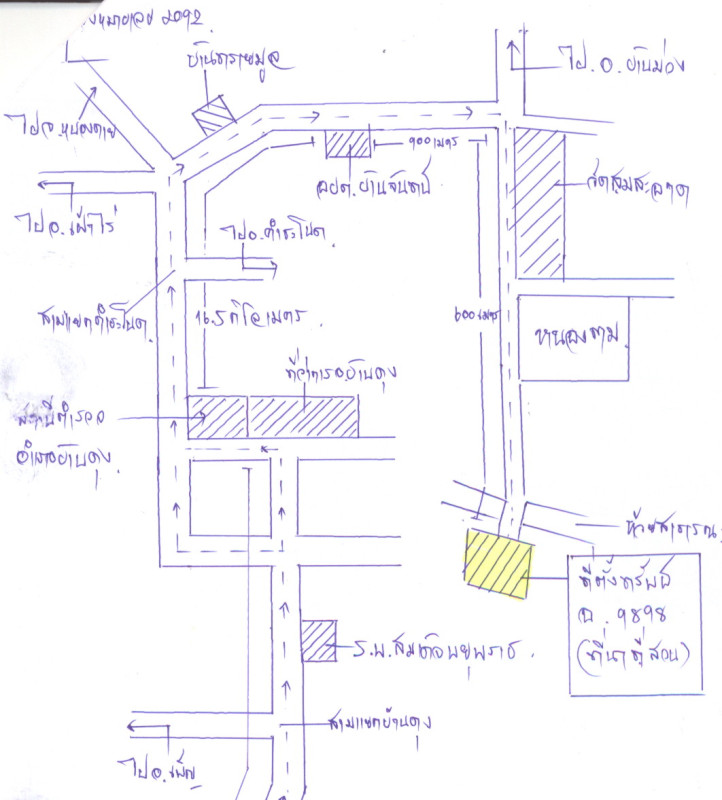 หมายเลข 2092
บ้านทรายมูล
ไป.อ.บ้านม่วง
ไปจ.หนองคาย
900 เมตร
อบต.บ้านจันทน์
ไปอ.เฝ้าไร่
ไปอ.คำชะโนด
สามแยกคำชะโนด
16.5 กิโลเมตร.
600 เมตร
หนองกาม
ที่ว่าการอ.บ้านดุง
สถานีตำรวจ
อำเภอบ้านดุง
ห้วยสาธารณะ
ที่ตั้งทรัพย์
ฉ. 9898
(ที่นา ที่สวน)
ร.พ.สมเด็จพระยุพราช.
สามแยกบ้านดุง
ไปอ.เพ็ญ